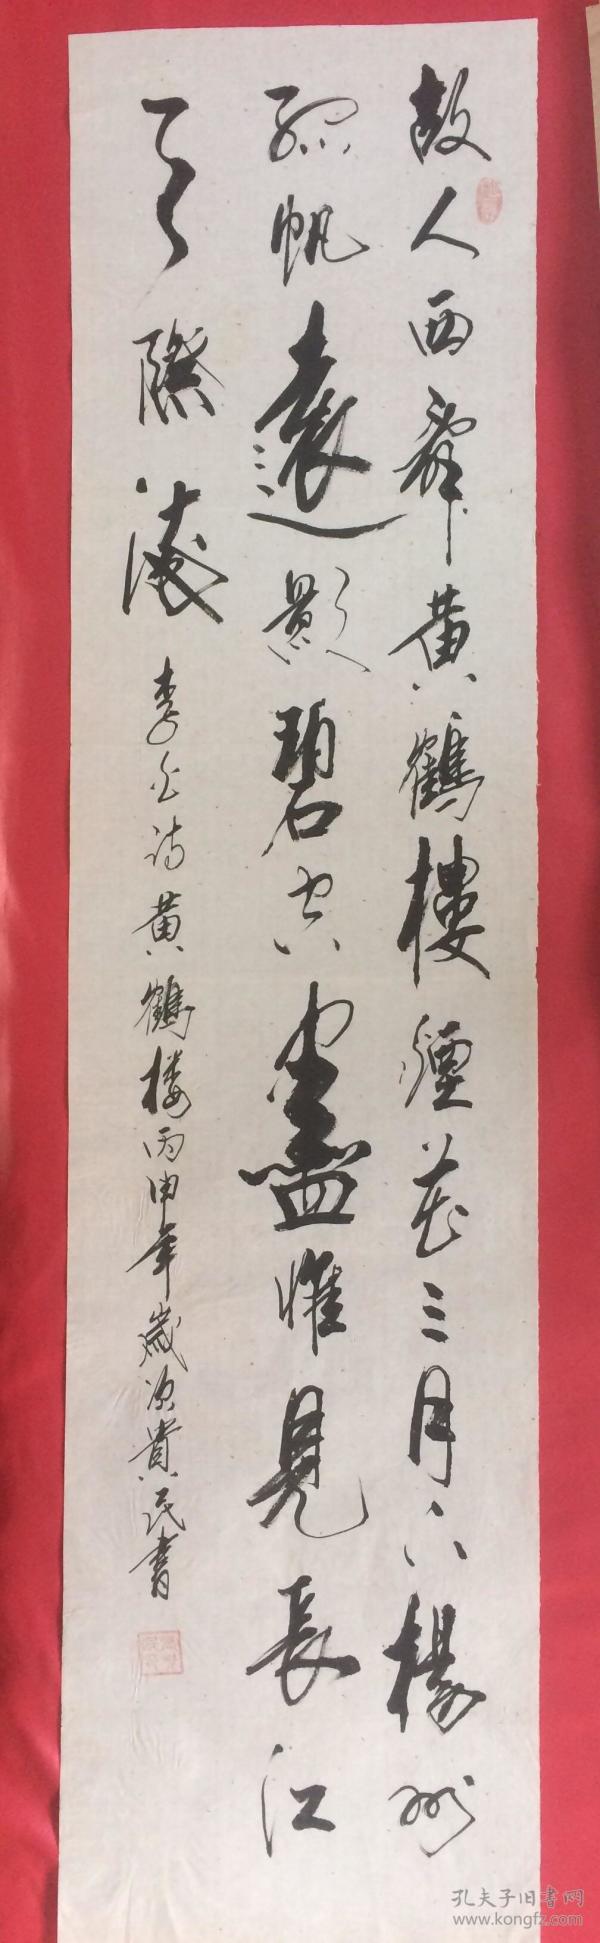 故人西辭黃鶴樓煙花三月下楊州
孤帆遠影碧空盡惟見長江
天際流
李白詩黃鶴樓丙申年歲次貴民書
孔夫子旧書网
www.kongfz.com